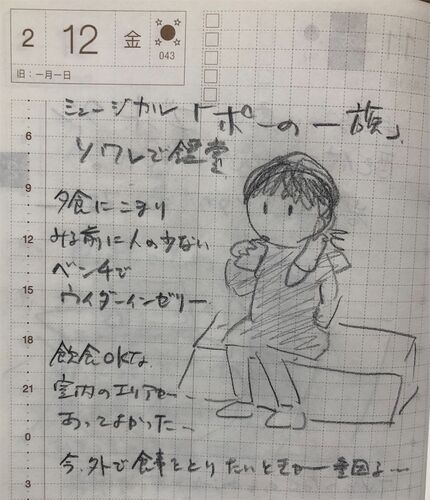 2 12 金
043
旧：一月一日
ミュージカル「ポーの一族」
ソワレで鑑賞
夕食にこまり
みる前に人の少ない
ベンチで
ウイダーインゼリー
飲食OKな
室内のエリアが
あってよかった…
今、外で食事をとりたいときが一番困るよ…
6
9
12
15
18
21
0
3